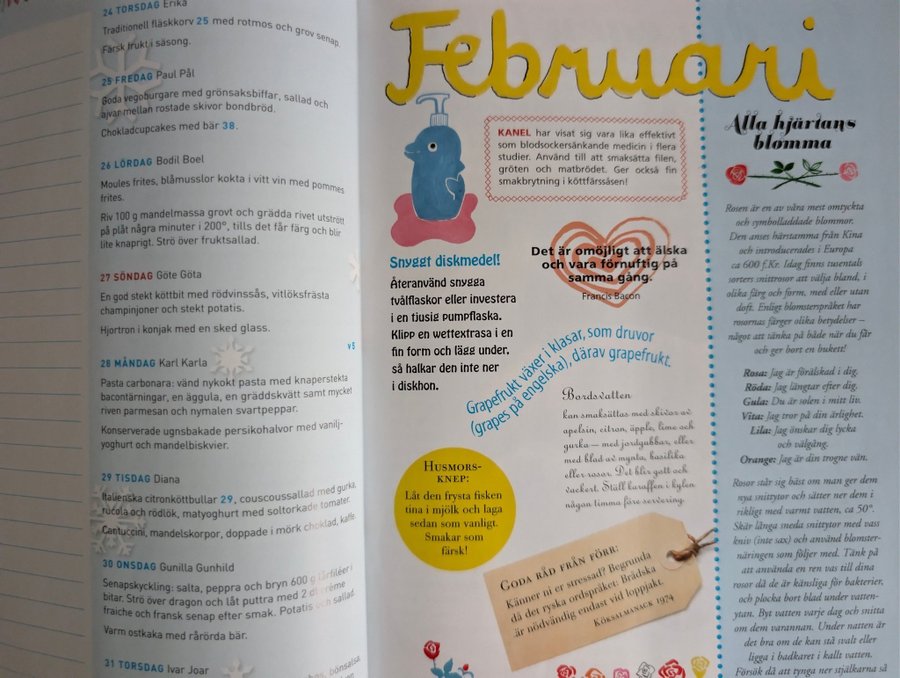 24 TORSDAG Erika
Traditionell fläskkorv 25 med rotmos och grov senap.
Färsk frukt i säsong.
25 FREDAG Paul Pål
Goda vegoburgare med grönsaksbiffar, sallad och
ajvar mellan rostade skivor bondbröd.
Chokladcupcakes med bär 38.
26 LÖRDAG Bodil Boel
Moules frites, blåmusslor kokta i vitt vin med pommes
frites.
Riv 100 g mandelmassa grovt och grädda rivet utstrött
på plåt några minuter i 200°, tills det får färg och blir
lite knaprigt. Strö över fruktsallad.
27 SÖNDAG Göte Göta
En god stekt köttbit med rödvinssås, vitlöksfrästa
champinjoner och stekt potatis.
Hjortron i konjak med en sked glass.
v5
28 MÅNDAG Karl Karla
Pasta carbonara: vänd nykokt pasta med knaperstekta
bacontärningar, en äggula, en gräddskvätt samt mycket
riven parmesan och nymalen svartpeppar.
Konserverade ugnsbakade persikohalvor med vanilj-
yoghurt och mandelbiskvier.
29 TISDAG Diana
Italienska citronköttbullar 29, couscoussallad med gurka,
rucola och rödlök, matyoghurt med soltorkade tomater.
Cantuccini, mandelskorpor, doppade i mörk choklad, kaffe.
30 ONSDAG Gunilla Gunhild
Senapskyckling: salta, peppra och bryn 600 g lårfiléer i
bitar. Strö över dragon och låt puttra med 2 dl crème
fraiche och fransk senap efter smak. Potatis och sallad.
Varm ostkaka med rårörda bär.
31 TORSDAG Ivar Joar
bönsalsa
Februari
KANEL har visat sig vara lika effektivt
som blodsockersänkande medicin i flera
studier. Använd till att smaksätta filen,
gröten och matbrödet. Ger också fin
smakbrytning i köttfärssåsen!
Snyggt diskmedel!
Återanvänd snygga
tvålflaskor eller investera
i en tjusig pumpflaska.
Klipp en wettextrasa i en
fin form och lägg under,
så halkar den inte ner
i diskhon.
Det är omöjligt att älska
och vara förnuftig på
samma gång.
Francis Bacon
Grapefrukt växer i klasar, som druvor
(grapes på engelska), därav grapefrukt.
Bordsvatten
kan smaksättas med skivor av
apelsin, citron, äpple, lime och
gurka – med jordgubbar, eller
med blad av mynta, basilika
eller rosor. Det blir gott och
vackert. Ställ karaffen i kylen
någon timma före servering.
HUSMORS-
KNEP:
Låt den frysta fisken
tina i mjölk och laga
sedan som vanligt.
Smakar som
färsk!
GODA RÅD FRÅN FÖRR:
Känner ni er stressad? Begrunda
då det ryska ordspråket: Brådska
är nödvändig endast vid loppjakt.
KÖKSALMANACK 1974
Alla hjärtans
blomma
Rosen är en av våra mest omtyckta
och symbolladdade blommor.
Den anses härstamma från Kina
och introducerades i Europa
ca 600 f.Kr. Idag finns tusentals
sorters snittrosor att välja bland, i
olika färg och form, med eller utan
doft. Enligt blomsterspråket har
rosornas färger olika betydelser –
något att tänka på både när du får
och ger bort en bukett!
Rosa: Jag är förälskad i dig.
Röda: Jag längtar efter dig.
Gula: Du är solen i mitt liv.
Vita: Jag tror på din ärlighet.
Lila: Jag önskar dig lycka
och välgång.
Orange: Jag är din trogne vän.
Rosor står sig bäst om man ger dem
nya snittytor och sätter ner dem i
rikligt med varmt vatten, ca 50°.
Skär långa sneda snittytor med vass
kniv (inte sax) och använd blomster-
näringen som följer med. Tänk på
att använda en ren vas till dina
rosor då de är känsliga för bakterier,
och plocka bort blad under vatten-
ytan. Byt vatten varje dag och snitta
om dem varannan. Under natten är
det bra om de kan stå svalt eller
ligga i badkaret i kallt vatten.
Försök då att tynga ner stjälkarna så